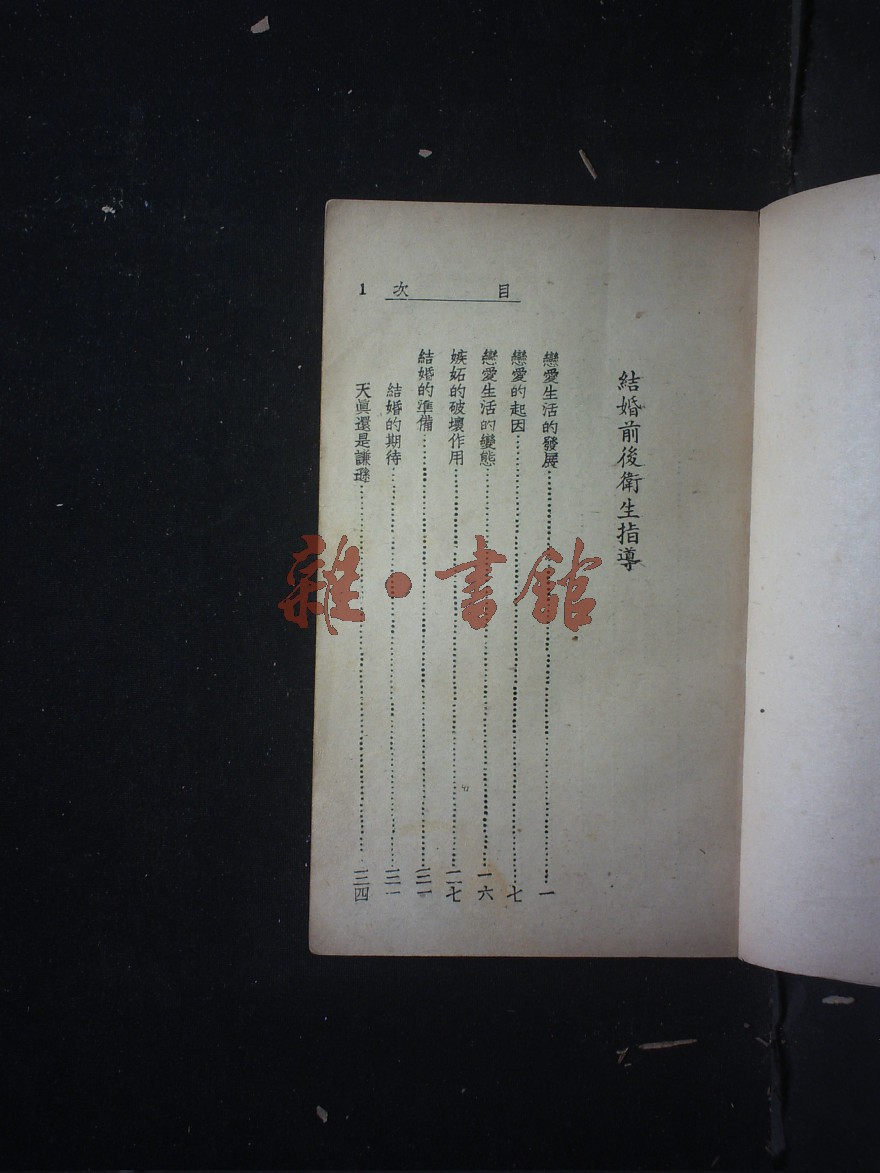 目次 1
結婚前後衛生指導
戀愛生活的發展……一
戀愛的起因……七
戀愛生活的變態……一六
嫉妬的破壞作用……二七
結婚的準備……三一
結婚的期待……三一
天眞還是謙遜……三四
雜·書館